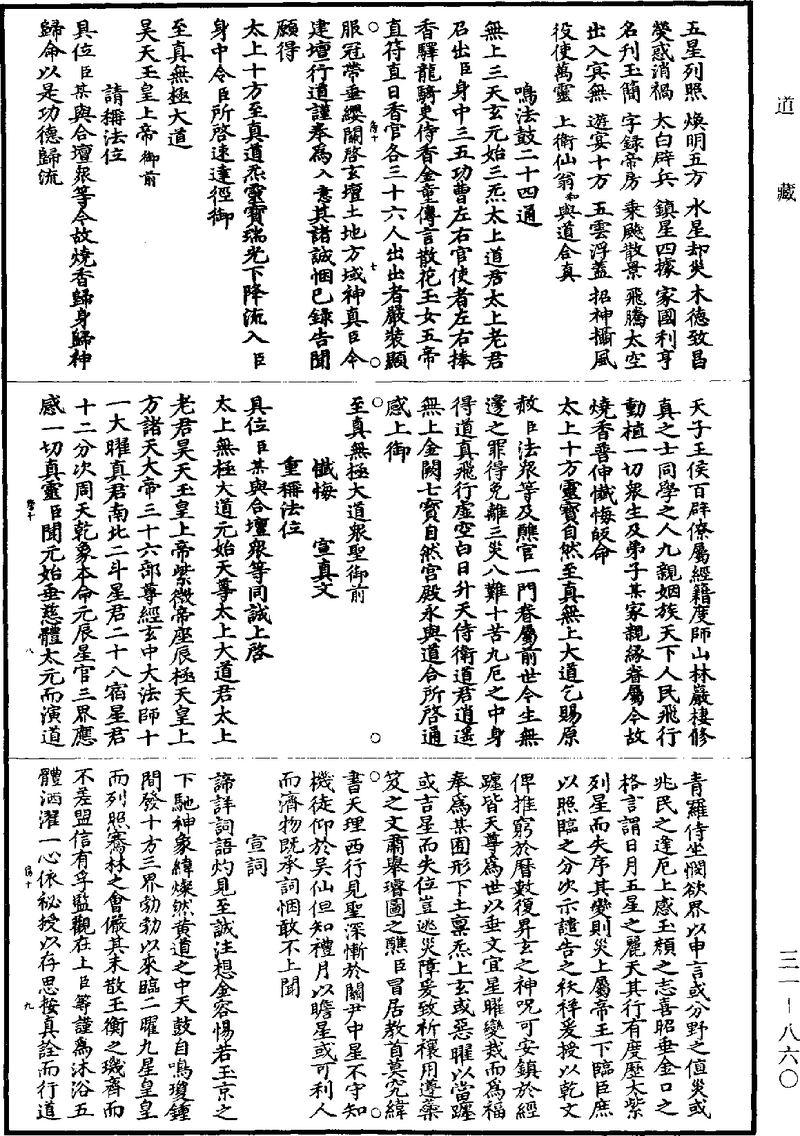 道藏
五星列照　煥明五方　水星却災　木德致昌
熒惑消禍　太白辟兵　鎮星四據　家國利亨
名刊玉簡　字錄帝房　乘飈散景　飛騰太空
出入寅無　遊宴十方　五雲浮蓋　招神攝風
役使萬靈　上衛仙翁和與道合真
鳴法鼓二十四通
無上三天玄元始三炁太上道君太上老君
召出臣身中三五功曹左右官使者左右捧
香驛龍騎吏侍香金童傳言散花玉女五帝
直符直日香官各三十六人出出者嚴裝顯
服冠帶垂纓關啓玄壇土地方域神真臣今
建壇行道謹奉為入意其諸誠悃已錄告聞
願得
太上十方至真道炁靈寶瑞光下降流入臣
身中令臣所啓速達徑御
至真無極大道
昊天玉皇上帝御前
請稱法位
具位臣某與合壇衆等今故燒香歸身歸神
歸命以是功德歸流
天子王侯百辟僚屬經籍度師山林巖棲修
真之士同學之人九親姻族天下人民飛行
動植一切衆生及弟子某家親緣眷屬今故
燒香普伸懺悔皈命
太上十方靈寶自然至真無上大道乞賜原
赦臣法衆等及醮官一門眷屬前世今生無
邊之罪得免離三災八難十苦九厄之中身
得道真飛行虛空白日升天侍衛道君逍遥
無上金闕七寶自然宫殿永與道合所啓通
感上御
至真無極大道衆聖御前
懺悔　宣真文
重稱法位
具位臣某與合壇衆等同誠上啓
太上無極大道元始天尊太上大道君太上
老君昊天玉皇上帝紫微帝座辰極天皇上
方諸天大帝三十六部尊經玄中大法師十
一大曜真君南北二斗星君二十八宿星君
十二分次周天乾象本命元辰星官三界應
感一切真靈臣聞元始垂慈體太元而演道
青羅侍坐憫欲界以申言或分野之值災或
兆民之逢厄上感玉頻之志喜昭垂金口之
格言謂日月五星之麗天其行有度歷太紫
列星而失序其變則災上屬帝王下臨臣庶
以照臨之分次示譴告之秋稱爰授以乾文
俾推窮於曆數復昇玄之神呪可安鎮於經
躔皆天尊為世以垂文宜星曜變烖而為福
奉為某囿形下土禀炁上玄或惡曜以當躔
或吉星而失位豈逃災障爰致祈禳用遵蘂
笈之文肅舉璿圖之醮臣冒居教首莫究緯
書天理西行見聖深慚於關尹中星不守知
機徒仰於吴仙但知禮月以瞻星或可利人
而濟物既承詞悃敢不上聞
宣詞
諦詳詞語灼見至誠注想金容惕若玉京之
下馳神象緯燦然黄道之中天鼓自鳴瓊鍾
間發十方三界勃勃以來臨二曜九星皇皇
而列照騫林之會儼其未散玉衡之璣齊而
不差盟信有孚監觀在上臣等謹為沐浴五
體洒濯一心依袐授以存思按真詮而行道
三一－八六〇